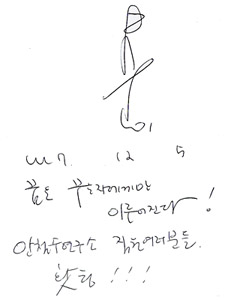 007. 12 5
꿈은 꾸는자에게만
이루어진다!
안철수연구소 직원여러분들.
홧팅!!!